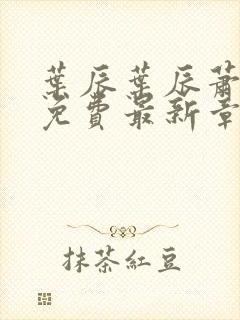 葉辰葉辰蕭
免費最新章
抹茶紅豆